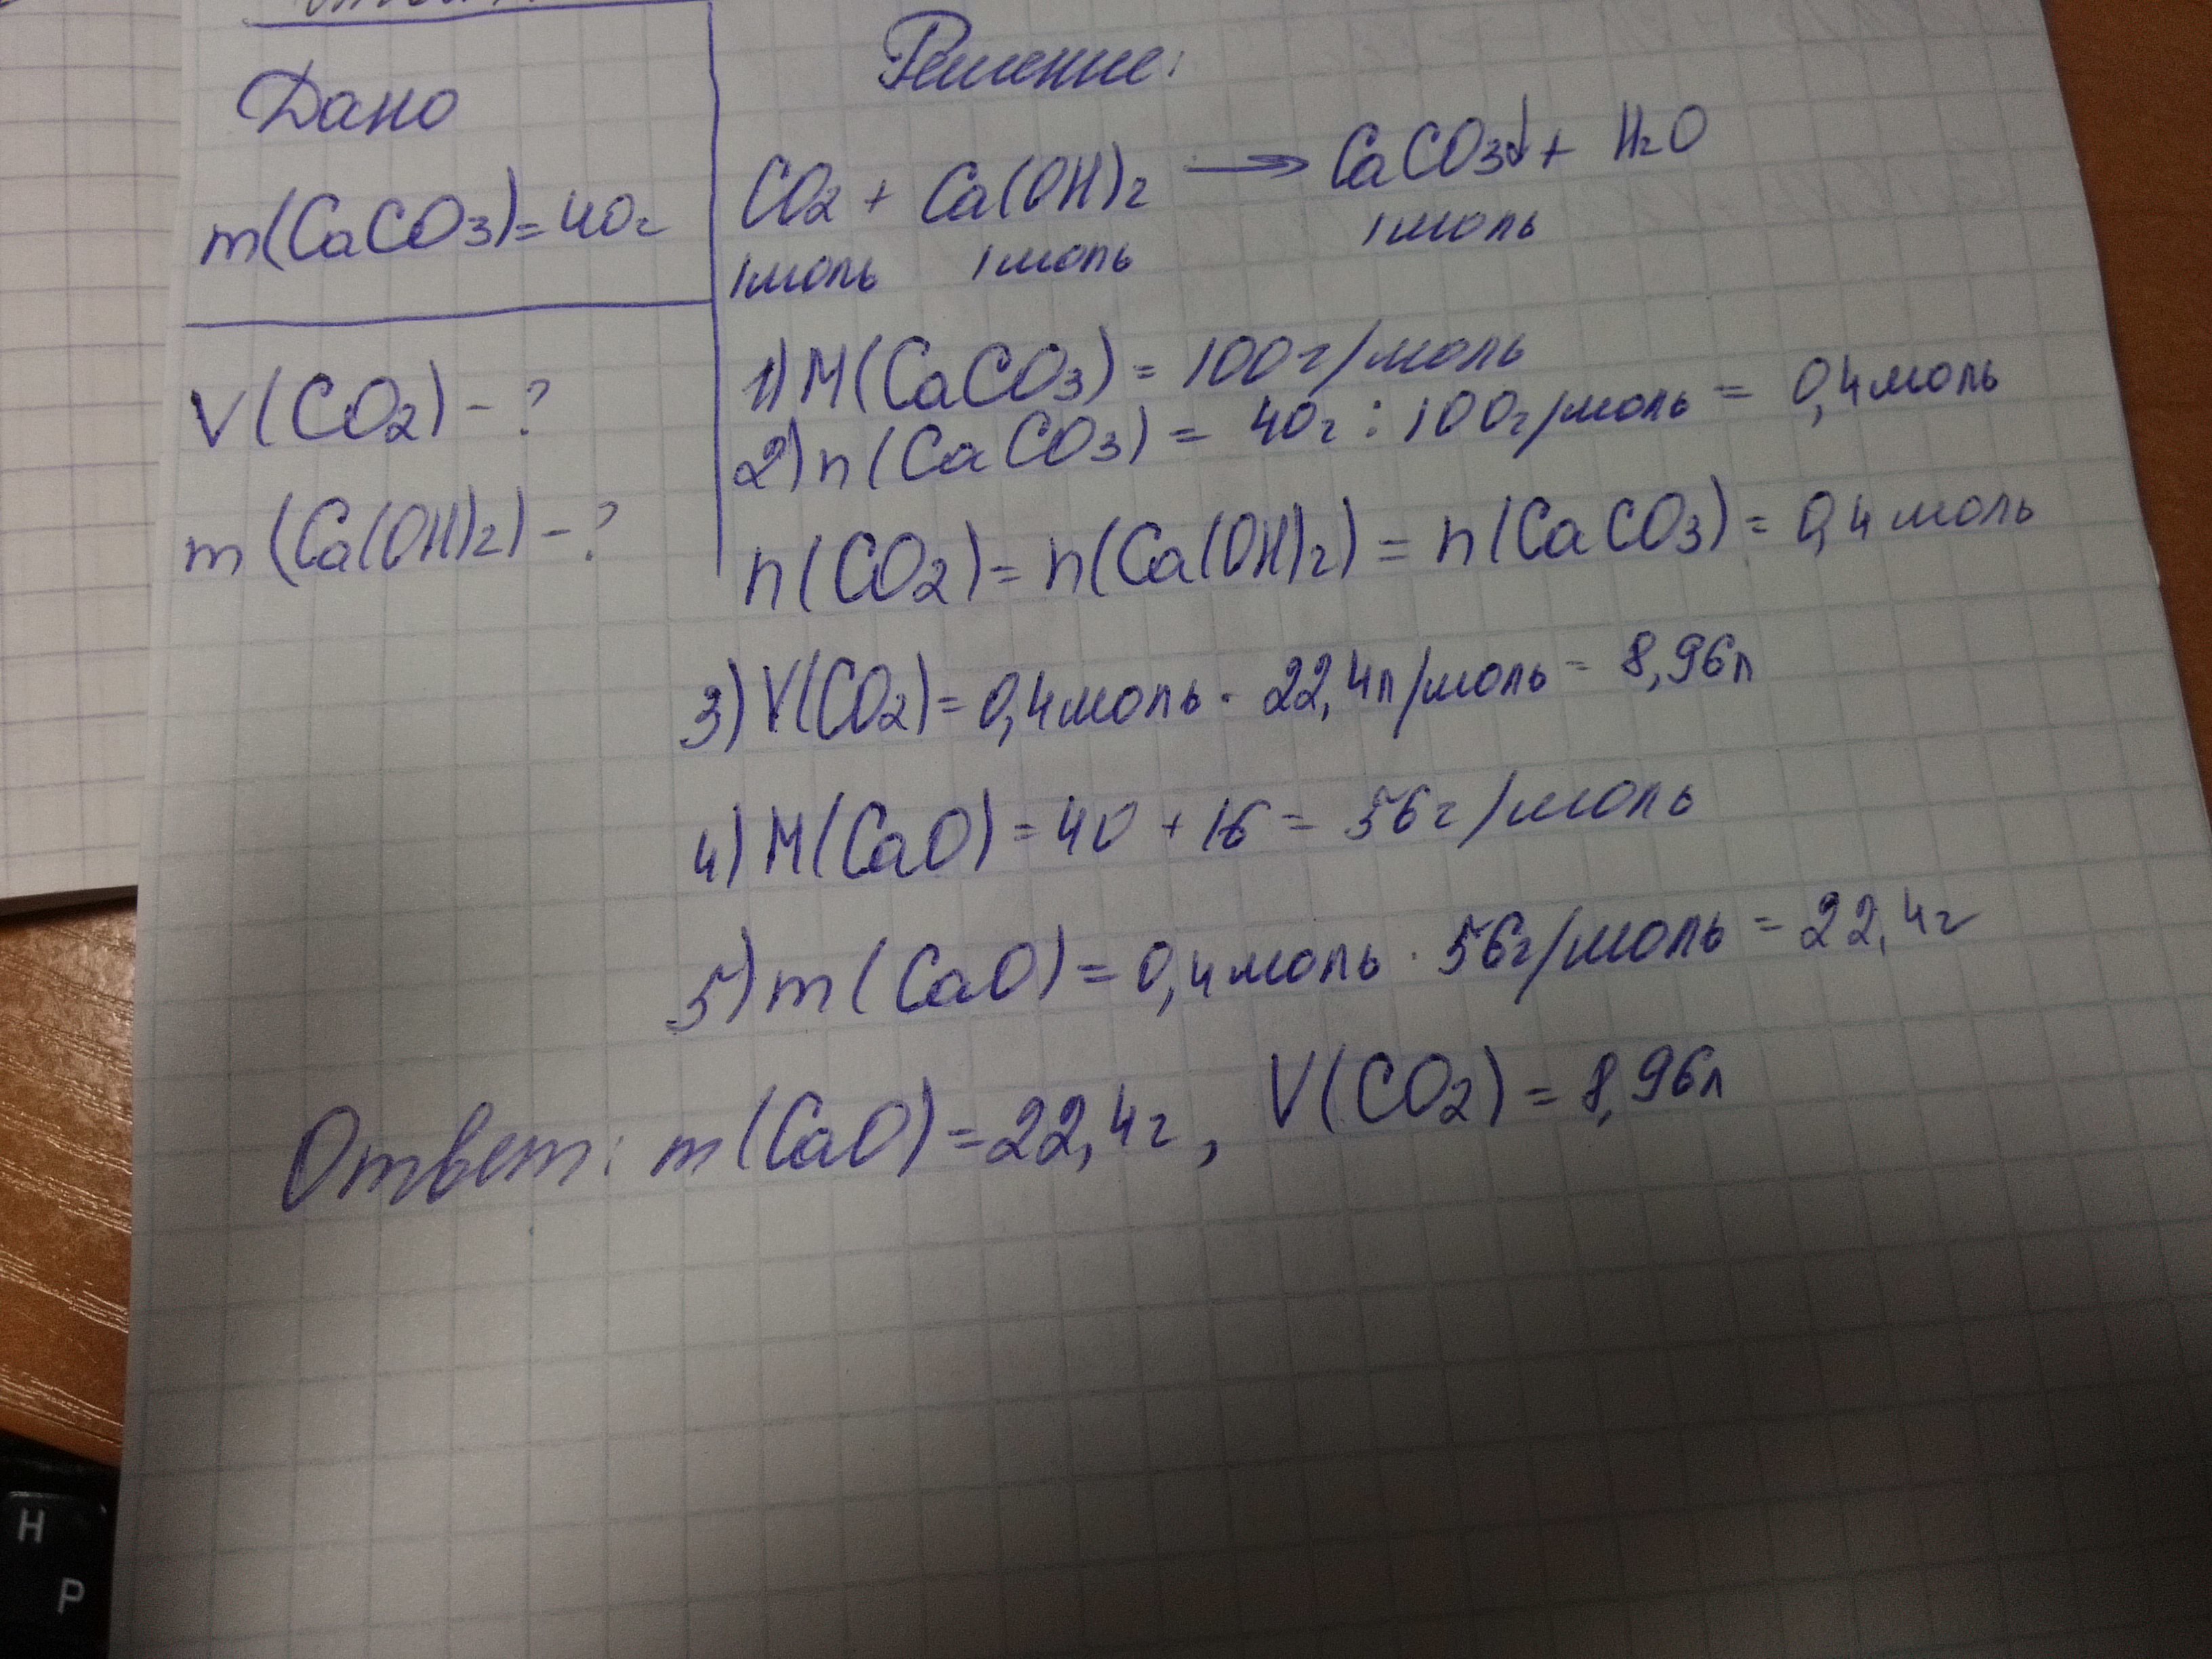 Дано
m(CaCO3)=40г
V(CO2) - ?
m (Ca(OH)2) - ?
Решение:
CO2 + Ca(OH)2 → CaCO3↓ + H2O
1моль 1моль 1моль
1) M(CaCO3) = 100г/моль
2) n(CaCO3) = 40г : 100г/моль = 0,4моль
n(CO2) = n(Ca(OH)2) = n(CaCO3) = 0,4 моль
3) V(CO2) = 0,4моль · 22,4л/моль = 8,96л
4) M(CaO) = 40 + 16 = 56г/моль
5) m(CaO) = 0,4моль · 56г/моль = 22,4г
Ответ: m(CaO) = 22,4г, V(CO2) = 8,96л
H
P